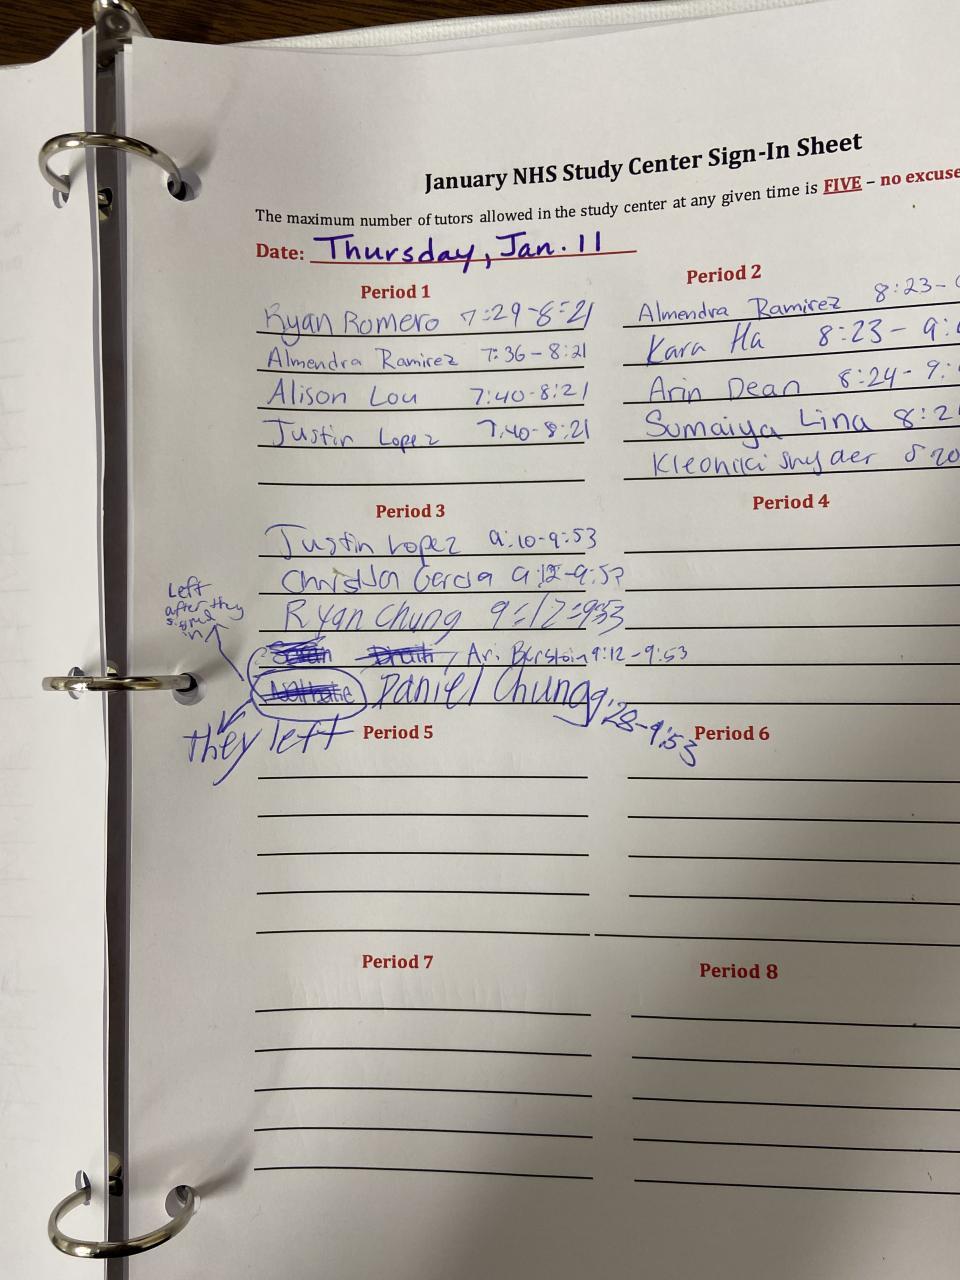 January NHS Study Center Sign-In Sheet
The maximum number of tutors allowed in the study center at any given time is FIVE – no excuse
Date: Thursday, Jan. 11
Period 1
Ryan Romero 7:29-8:21
Almendra Ramirez 7:36-8:21
Alison Lou 7:40-8:21
Justin Lopez 7:40-8:21
Period 2
Almendra Ramirez 8:23-
Kara Ha 8:23-9:
Arin Dean 8:24-9:
Sumaiya Lina 8:2
Kleoniki Snyder
Period 3
Justin Lopez 9:10-9:53
Garcia 9:12-9:53
Ryan Chung 9:12-9:53
Left after they signed in
Ari 9:12-9:53
Daniel Chung 9:28-9:53
they left
Period 4
Period 5
Period 6
Period 7
Period 8